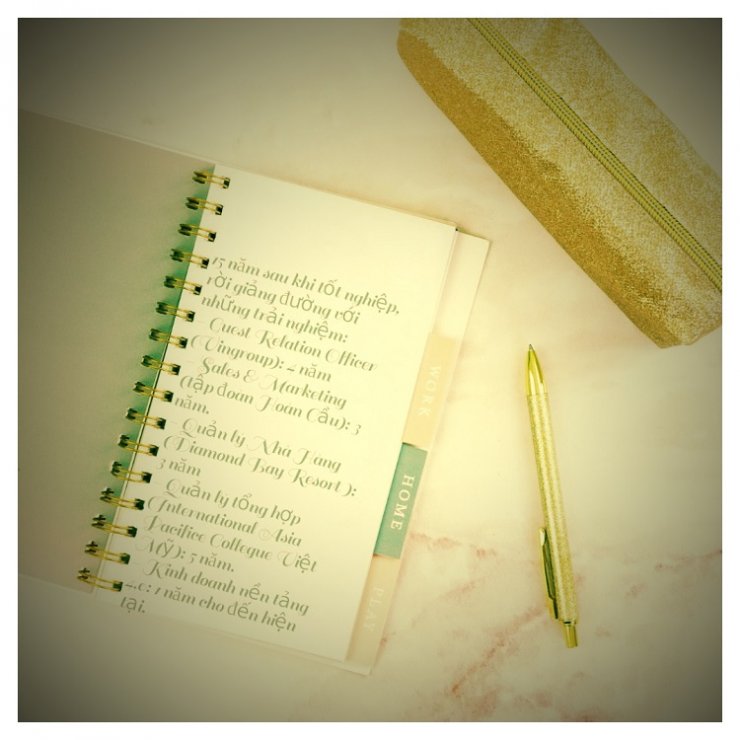 15 năm sau khi tốt nghiệp,
rời giảng đường với
những trải nghiệm:
- Guest Relation Officer
(Vingroup): 2 năm
- Sales & Marketing
(tập đoàn Hoàn Cầu): 3
năm.
- Quản lý Nhà Hàng
(Diamond Bay Resort ):
3 năm
- Quản lý tổng hợp
(International Asia
Pacifice Collegue Việt
Mỹ): 5 năm.
- Kinh doanh nền tảng
4.0: 1 năm cho đến hiện
tại.
WORK
HOME
PLAY